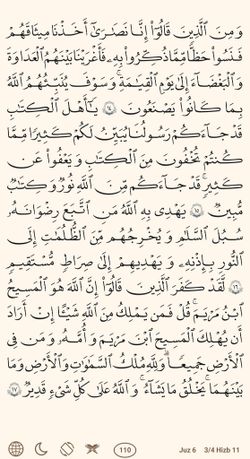 وَمِنَ ٱلَّذِينَ قَالُوٓا۟ إِنَّا نَصَـٰرَىٰٓ أَخَذْنَا مِيثَـٰقَهُمْ
فَنَسُوا۟ حَظًّا مِّمَّا ذُكِّرُوا۟ بِهِۦ فَأَغْرَيْنَا بَيْنَهُمُ ٱلْعَدَاوَةَ
وَٱلْبَغْضَآءَ إِلَىٰ يَوْمِ ٱلْقِيَـٰمَةِ ۚ وَسَوْفَ يُنَبِّئُهُمُ ٱللَّهُ
بِمَا كَانُوا۟ يَصْنَعُونَ ١٤ يَـٰٓأَهْلَ ٱلْكِتَـٰبِ
قَدْ جَآءَكُمْ رَسُولُنَا يُبَيِّنُ لَكُمْ كَثِيرًا مِّمَّا
كُنتُمْ تُخْفُونَ مِنَ ٱلْكِتَـٰبِ وَيَعْفُوا۟ عَن
كَثِيرٍ ۚ قَدْ جَآءَكُم مِّنَ ٱللَّهِ نُورٌ وَكِتَـٰبٌ
مُّبِينٌ ١٥ يَهْدِى بِهِ ٱللَّهُ مَنِ ٱتَّبَعَ رِضْوَٰنَهُۥ
سُبُلَ ٱلسَّلَـٰمِ وَيُخْرِجُهُم مِّنَ ٱلظُّلُمَـٰتِ إِلَى
ٱلنُّورِ بِإِذْنِهِۦ وَيَهْدِيهِمْ إِلَىٰ صِرَٰطٍ مُّسْتَقِيمٍ
١٦ لَّقَدْ كَفَرَ ٱلَّذِينَ قَالُوٓا۟ إِنَّ ٱللَّهَ هُوَ ٱلْمَسِيحُ
ٱبْنُ مَرْيَمَ ۚ قُلْ فَمَن يَمْلِكُ مِنَ ٱللَّهِ شَيْـًٔا إِنْ أَرَادَ
أَن يُهْلِكَ ٱلْمَسِيحَ ٱبْنَ مَرْيَمَ وَأُمَّهُۥ وَمَن فِى
ٱلْأَرْضِ جَمِيعًا ۗ وَلِلَّهِ مُلْكُ ٱلسَّمَـٰوَٰتِ وَٱلْأَرْضِ وَمَا
بَيْنَهُمَا ۚ يَخْلُقُ مَا يَشَآءُ ۚ وَٱللَّهُ عَلَىٰ كُلِّ شَىْءٍ قَدِيرٌ ١٧
110 Juz 6 3/4 Hizb 11